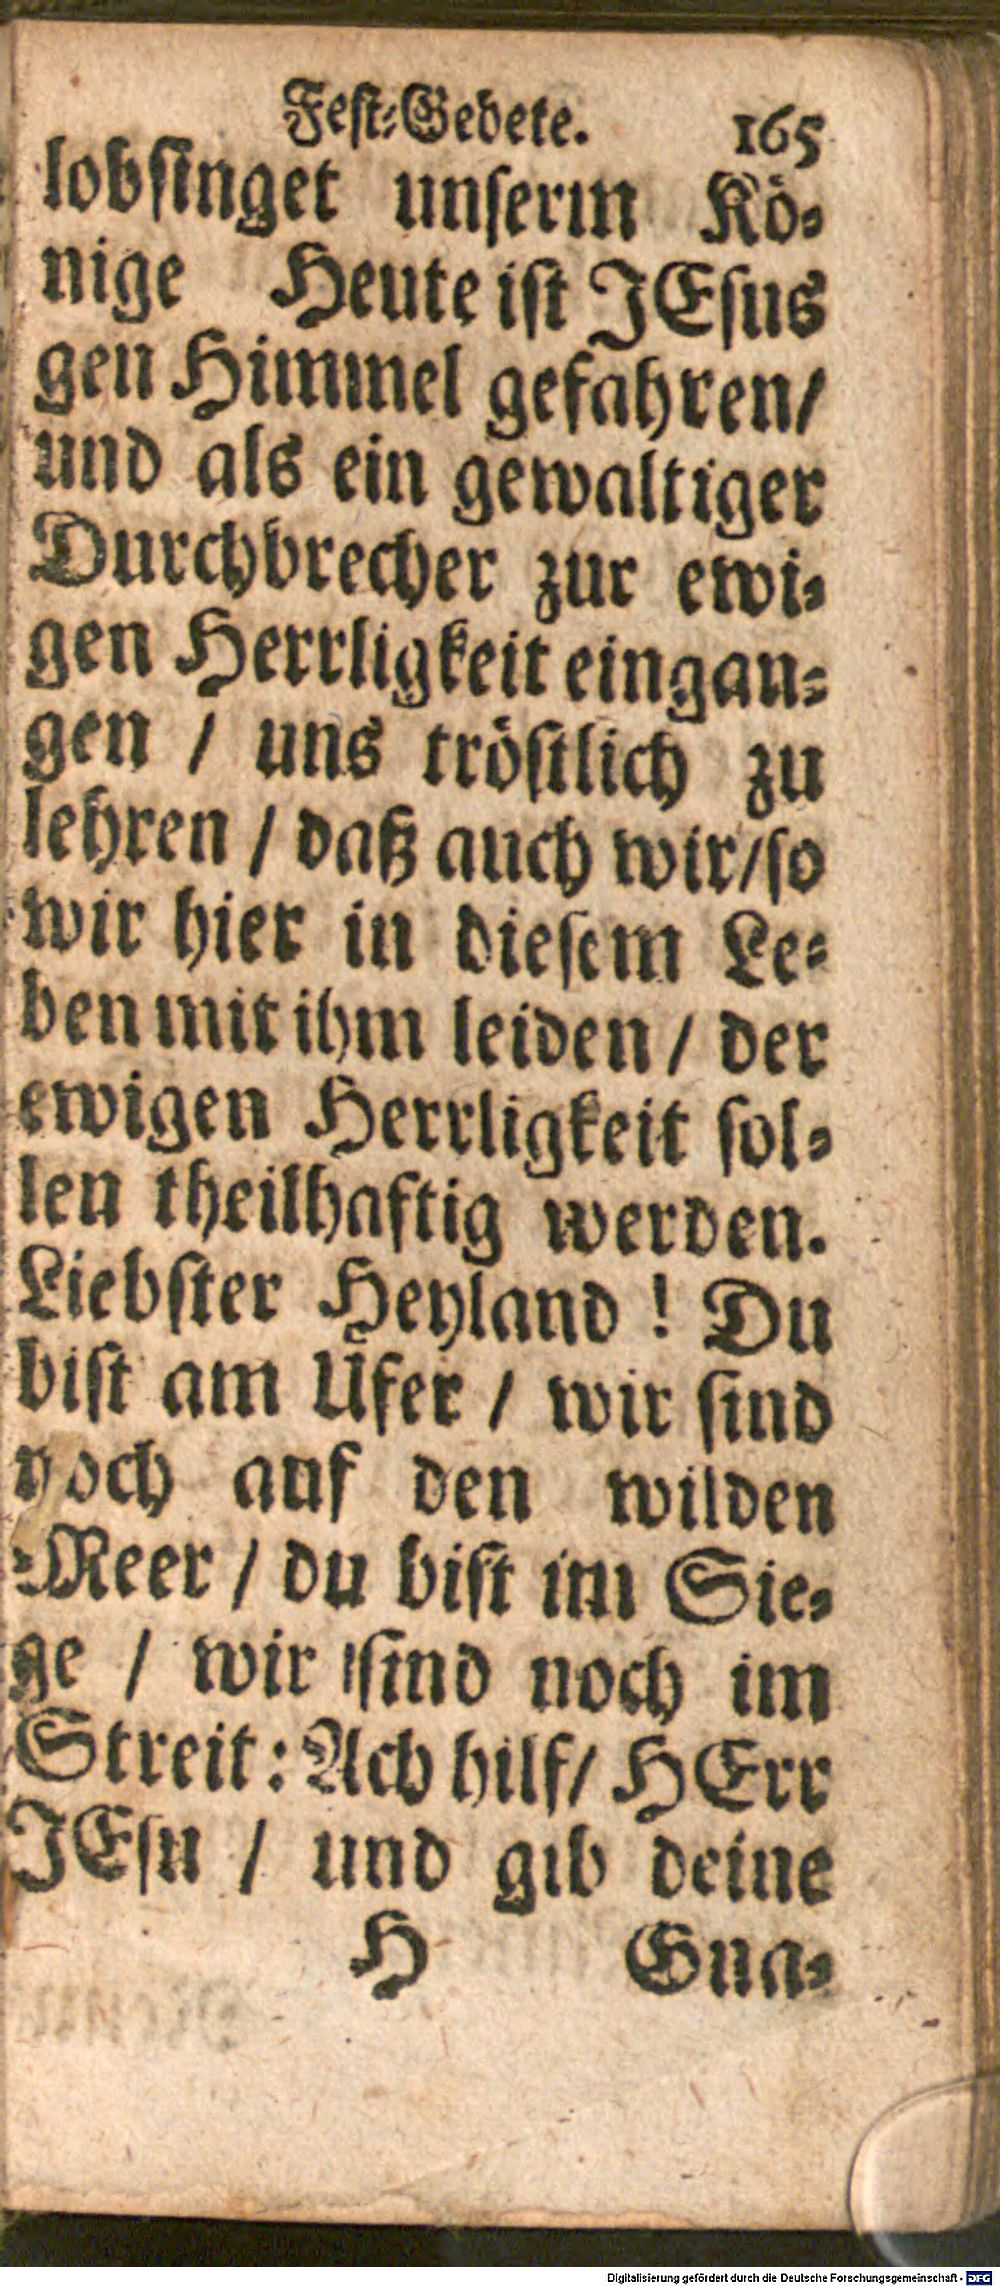 Fest-Gebete. 165
lobsinget unserm Kö-
nige Heute ist JEsus
gen Himmel gefahren/
und als ein gewaltiger
Durchbrecher zur ewi-
gen Herrligkeit eingan-
gen / uns tröstlich zu
lehren / daß auch wir/so
wir hier in diesem Le-
ben mit ihm leiden / der
ewigen Herrligkeit sol-
len theilhaftig werden.
Liebster Heyland ! Du
bist am Ufer / wir sind
noch auf den wilden
Meer / du bist im Sie-
ge / wir sind noch im
Streit: Ach hilf/ HErr
JEsu / und gib deine
H Gna-
Digitalisierung gefördert durch die Deutsche Forschungsgemeinschaft - DFG